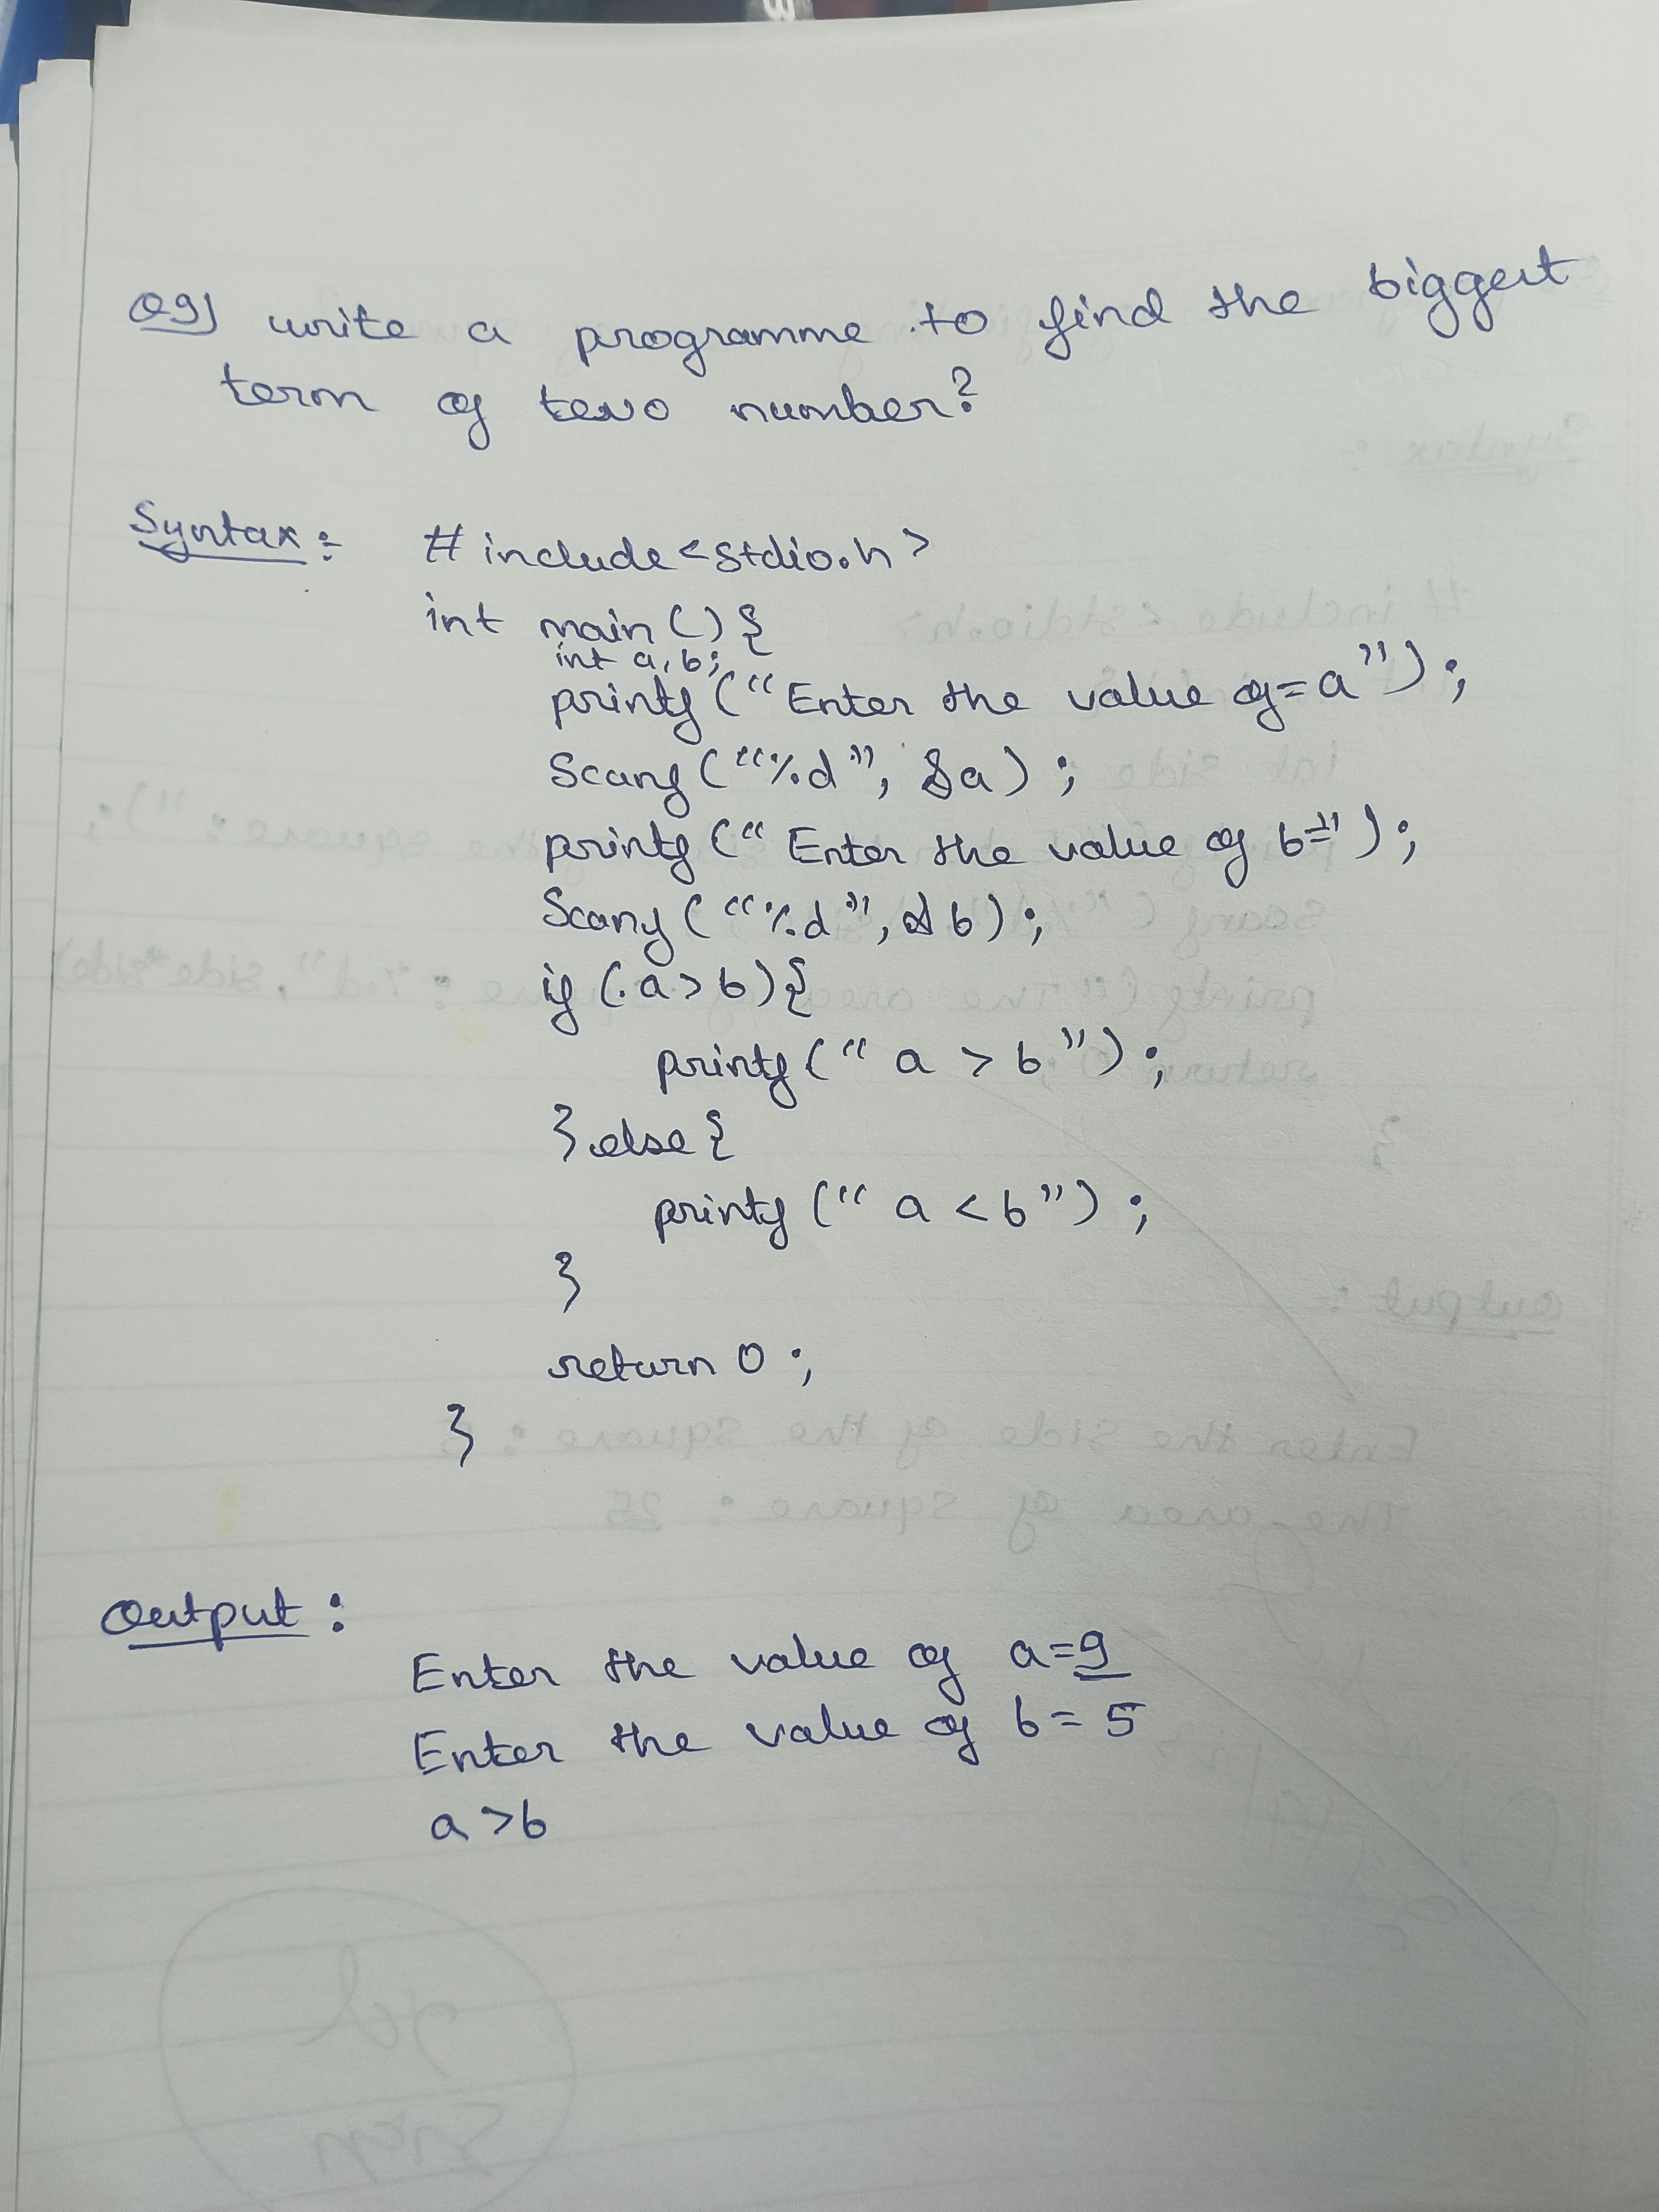 Q9) write a programme to find the biggest
term of two number?
Syntax:- #include<stdio.h>
int main(){
int a,b;
printf("Enter the value of=a");
Scanf("%d", &a);
printf("Enter the value of b=");
Scanf("%d", &b);
if (a>b){
printf("a > b");
}else{
printf("a < b");
}
return 0;
}
Output:
Enter the value of a=9
Enter the value of b=5
a>b